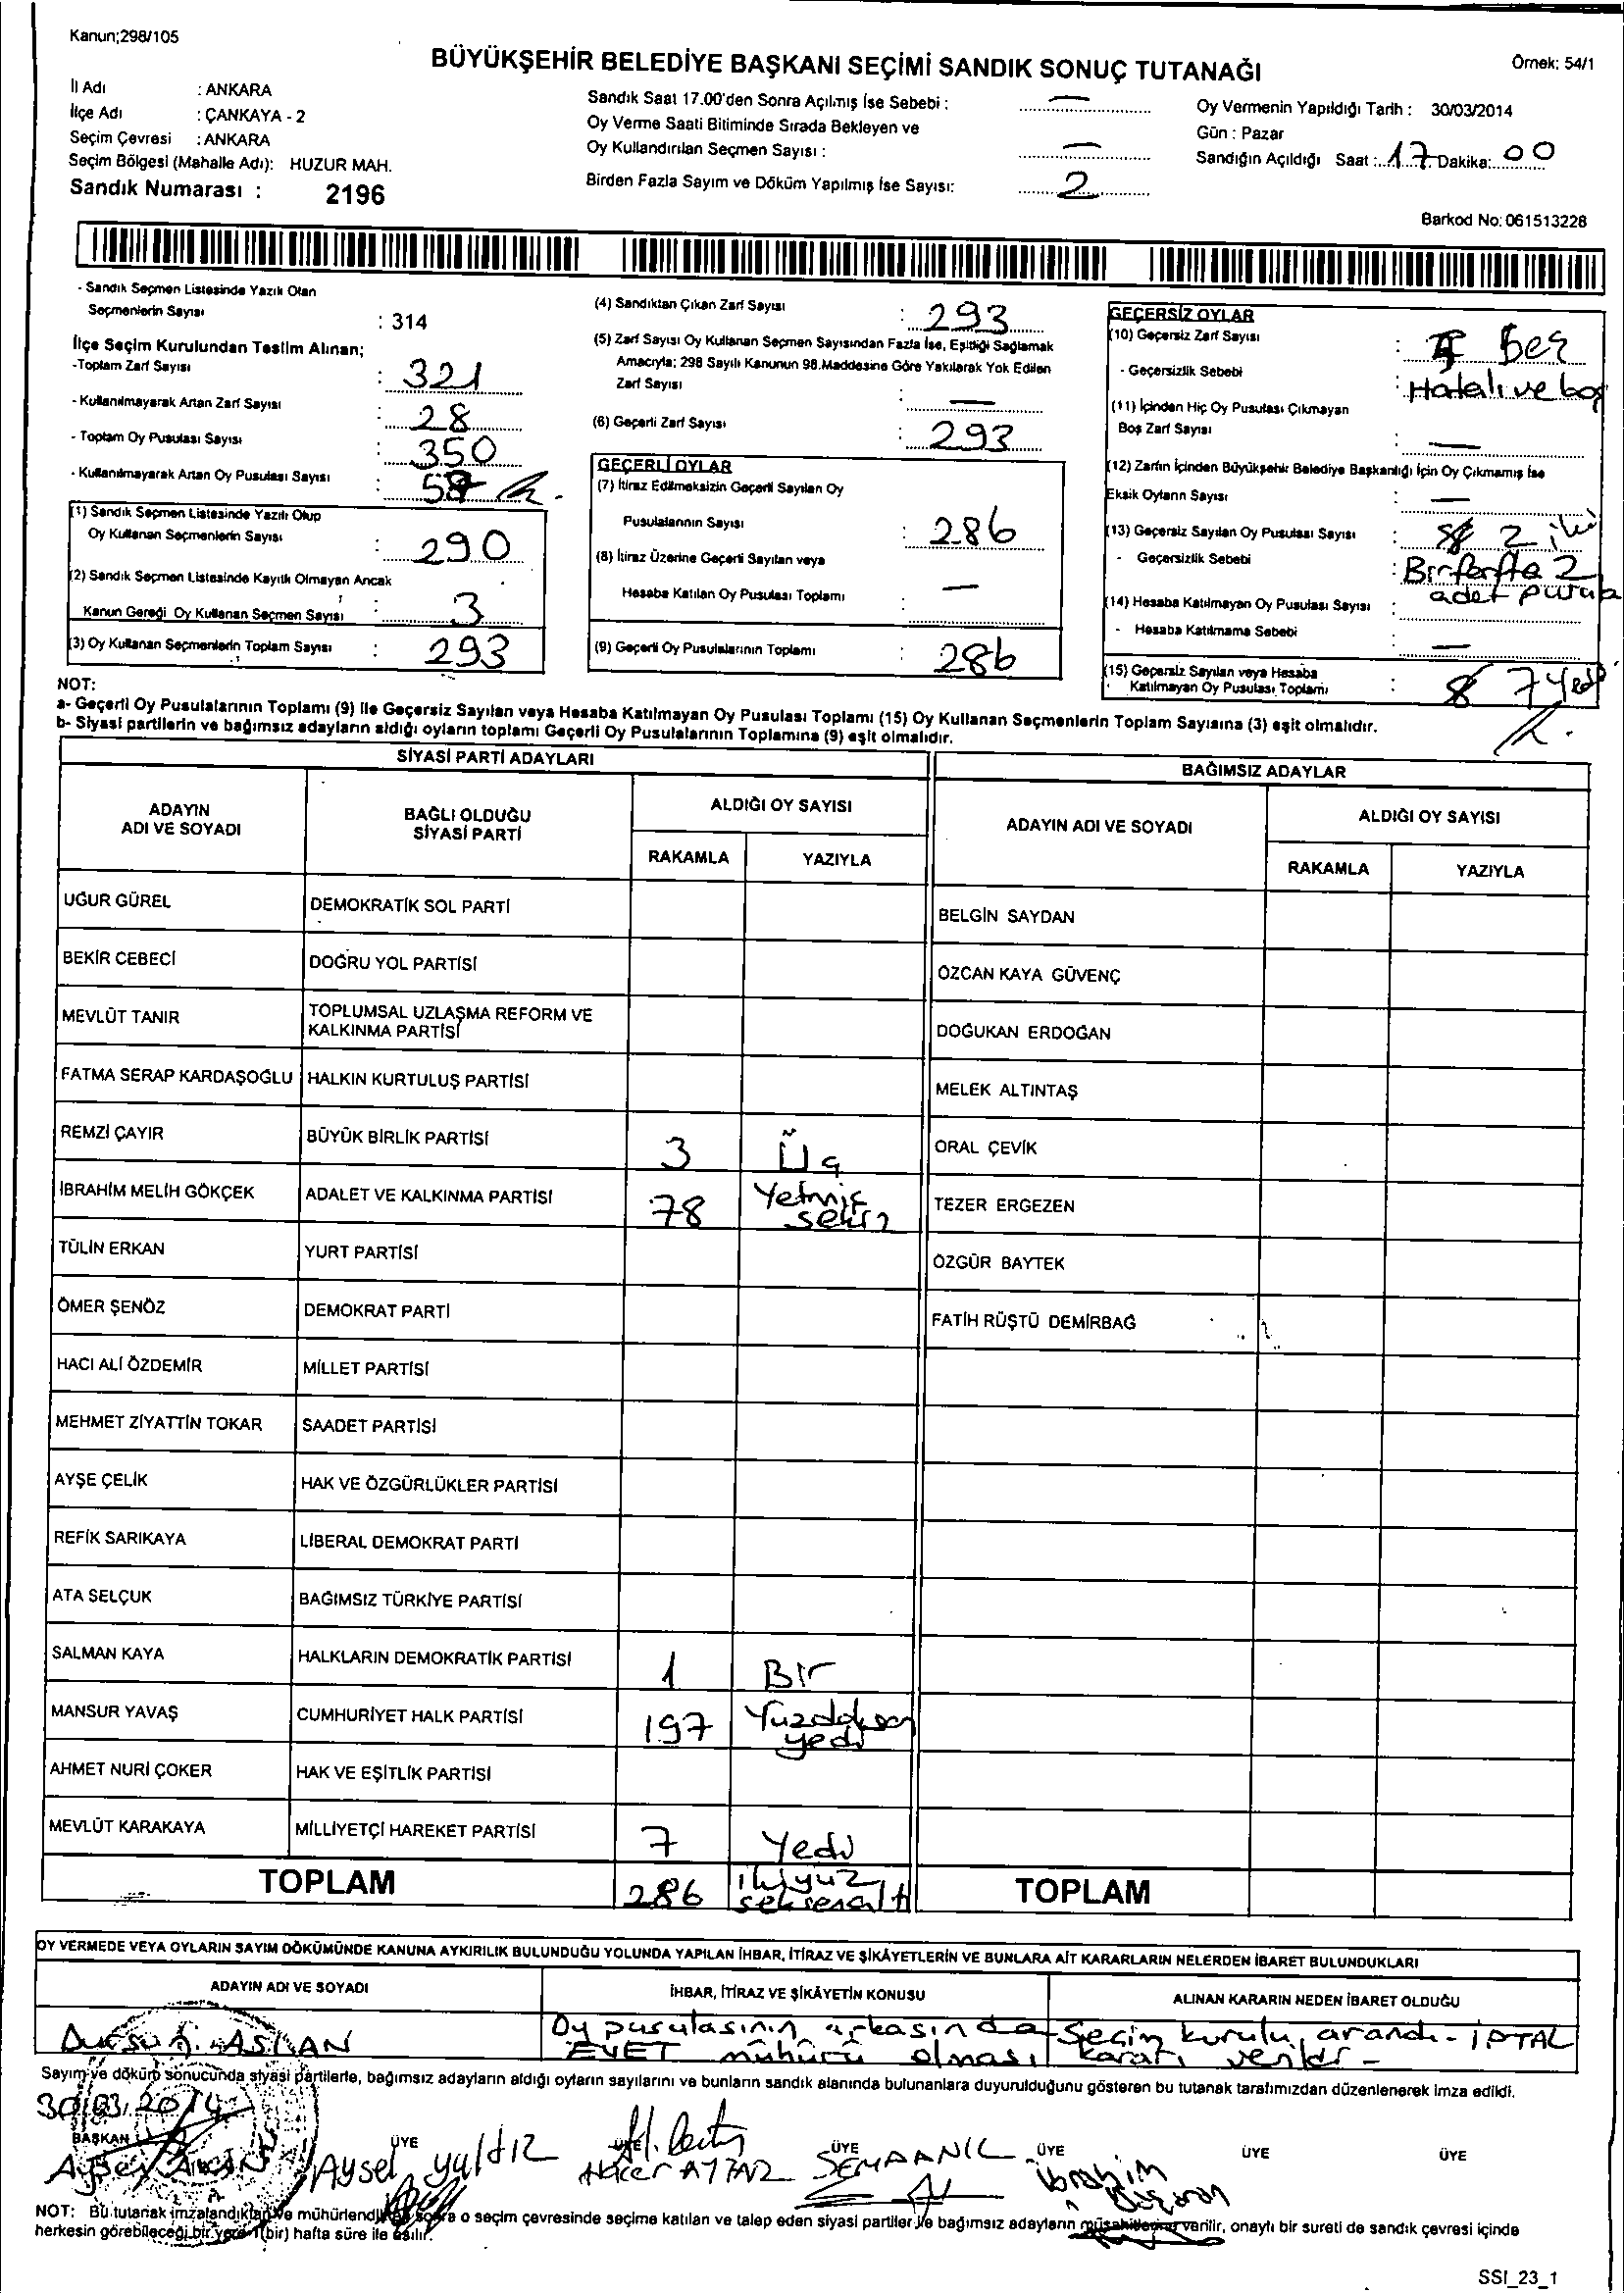 Kanun;298/105
BÜYÜKŞEHİR BELEDİYE BAŞKANI SEÇİMİ SANDIK SONUÇ TUTANAĞI
Örnek: 54/1
İl Adı : ANKARA
İlçe Adı : ÇANKAYA - 2
Seçim Çevresi : ANKARA
Seçim Bölgesi (Mahalle Adı): HUZUR MAH.
Sandık Numarası : 2196
Sandık Saat 17.00'den Sonra Açılmış İse Sebebi : —
Oy Verme Saati Bitiminde Sırada Bekleyen ve
Oy Kullandırılan Seçmen Sayısı : —
Birden Fazla Sayım ve Döküm Yapılmış İse Sayısı: 2
Oy Vermenin Yapıldığı Tarih : 30/03/2014
Gün : Pazar
Sandığın Açıldığı Saat : 17 Dakika: 00
Barkod No: 061513228
- Sandık Seçmen Listesinde Yazılı Olan
Seçmenlerin Sayısı : 314
İlçe Seçim Kurulundan Teslim Alınan;
-Toplam Zarf Sayısı : 321
- Kullanılmayarak Artan Zarf Sayısı : 28
- Toplam Oy Pusulası Sayısı : 350
- Kullanılmayarak Artan Oy Pusulası Sayısı :
(1) Sandık Seçmen Listesinde Yazılı Olup
Oy Kullanan Seçmenlerin Sayısı : 290
(2) Sandık Seçmen Listesinde Kayıtlı Olmayan Ancak
Kanun Gereği Oy Kullanan Seçmen Sayısı : 3
(3) Oy Kullanan Seçmenlerin Toplam Sayısı : 293
(4) Sandıktan Çıkan Zarf Sayısı : 293
(5) Zarf Sayısı Oy Kullanan Seçmen Sayısından Fazla İse, Eşitliği Sağlamak
Amacıyla; 298 Sayılı Kanunun 98.Maddesine Göre Yakılarak Yok Edilen
Zarf Sayısı : —
(6) Geçerli Zarf Sayısı : 293
GEÇERLİ OYLAR
(7) İtiraz Edilmeksizin Geçerli Sayılan Oy
Pusulalarının Sayısı : 286
(8) İtiraz Üzerine Geçerli Sayılan veya
Hesaba Katılan Oy Pusulası Toplamı : —
(9) Geçerli Oy Pusulalarının Toplamı : 286
GEÇERSİZ OYLAR
(10) Geçersiz Zarf Sayısı : Beş
- Geçersizlik Sebebi : Hatalı ve boş
(11) İçinden Hiç Oy Pusulası Çıkmayan
Boş Zarf Sayısı : —
(12) Zarfın İçinden Büyükşehir Belediye Başkanlığı İçin Oy Çıkmamış İse
Eksik Oyların Sayısı : —
(13) Geçersiz Sayılan Oy Pusulası Sayısı : 2 iki
- Geçersizlik Sebebi : 2
adet
(14) Hesaba Katılmayan Oy Pusulası Sayısı :
- Hesaba Katılmama Sebebi : —
(15) Geçersiz Sayılan veya Hesaba
Katılmayan Oy Pusulası Toplamı : 8 7 yedi
NOT:
a- Geçerli Oy Pusulalarının Toplamı (9) ile Geçersiz Sayılan veya Hesaba Katılmayan Oy Pusulası Toplamı (15) Oy Kullanan Seçmenlerin Toplam Sayısına (3) eşit olmalıdır.
b- Siyasi partilerin ve bağımsız adayların aldığı oyların toplamı Geçerli Oy Pusulalarının Toplamına (9) eşit olmalıdır.
SİYASİ PARTİ ADAYLARI
BAĞIMSIZ ADAYLAR
ADAYIN
ADI VE SOYADI
BAĞLI OLDUĞU
SİYASİ PARTİ
ALDIĞI OY SAYISI
RAKAMLA YAZIYLA
ADAYIN ADI VE SOYADI
ALDIĞI OY SAYISI
RAKAMLA YAZIYLA
UĞUR GÜREL DEMOKRATİK SOL PARTİ BELGİN SAYDAN
BEKİR CEBECİ DOĞRU YOL PARTİSİ ÖZCAN KAYA GÜVENÇ
MEVLÜT TANIR TOPLUMSAL UZLAŞMA REFORM VE
KALKINMA PARTİSİ DOĞUKAN ERDOĞAN
FATMA SERAP KARDAŞOĞLU HALKIN KURTULUŞ PARTİSİ MELEK ALTINTAŞ
REMZİ ÇAYIR BÜYÜK BİRLİK PARTİSİ 3 Üç ORAL ÇEVİK
İBRAHİM MELİH GÖKÇEK ADALET VE KALKINMA PARTİSİ 78 Yetmiş
sekiz TEZER ERGEZEN
TÜLİN ERKAN YURT PARTİSİ ÖZGÜR BAYTEK
ÖMER ŞENÖZ DEMOKRAT PARTİ FATİH RÜŞTÜ DEMİRBAĞ
HACI ALİ ÖZDEMİR MİLLET PARTİSİ
MEHMET ZİYATTİN TOKAR SAADET PARTİSİ
AYŞE ÇELİK HAK VE ÖZGÜRLÜKLER PARTİSİ
REFİK SARIKAYA LİBERAL DEMOKRAT PARTİ
ATA SELÇUK BAĞIMSIZ TÜRKİYE PARTİSİ
SALMAN KAYA HALKLARIN DEMOKRATİK PARTİSİ 1 Bir
MANSUR YAVAŞ CUMHURİYET HALK PARTİSİ 197 Yüzdoksan
yedi
AHMET NURİ ÇOKER HAK VE EŞİTLİK PARTİSİ
MEVLÜT KARAKAYA MİLLİYETÇİ HAREKET PARTİSİ 7 Yedi
TOPLAM 286 ikiyüz
seksenaltı TOPLAM
OY VERMEDE VEYA OYLARIN SAYIM DÖKÜMÜNDE KANUNA AYKIRILIK BULUNDUĞU YOLUNDA YAPILAN İHBAR, İTİRAZ VE ŞİKÂYETLERİN VE BUNLARA AİT KARARLARIN NELERDEN İBARET BULUNDUKLARI
ADAYIN ADI VE SOYADI İHBAR, İTİRAZ VE ŞİKÂYETİN KONUSU ALINAN KARARIN NEDEN İBARET OLDUĞU
ASLAN Oy pusulasının arkasında Seçim kurulu arandı - İPTAL
EVET mühürü olması kararı verildi -
Sayım ve döküm sonucunda siyasi partilerle, bağımsız adayların aldığı oyların sayılarını ve bunların sandık alanında bulunanlara duyurulduğunu gösteren bu tutanak tarafımızdan düzenlenerek imza edildi.
30/03/2014
BAŞKAN ÜYE ÜYE ÜYE ÜYE ÜYE ÜYE
Aysel yıldız SEMA ANIL İbrahim
NOT: Bu tutanak imzalandıktan ve mühürlendikten sonra o seçim çevresinde seçime katılan ve talep eden siyasi partiler ile bağımsız adayların müşahitlerine verilir, onaylı bir sureti de sandık çevresi içinde
herkesin görebileceği bir yere 1(bir) hafta süre ile asılır.
SSI_23_1